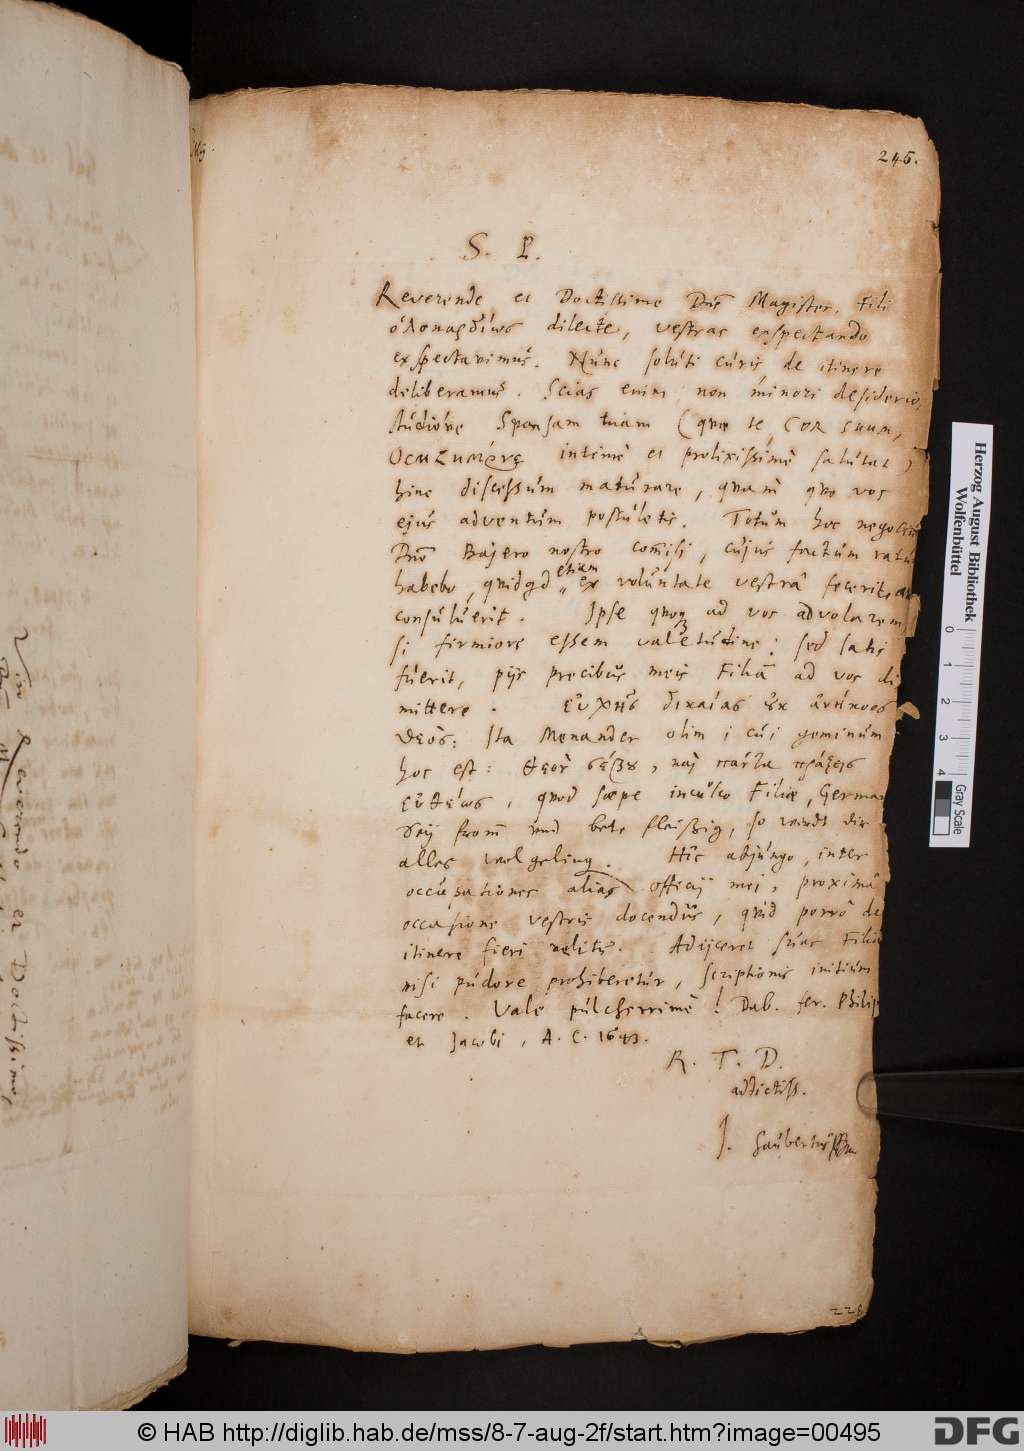 245.
S. P.
Reverende et Doctissime Dne Magister, Fili
ὁλοκαρδίως dilecte, vestras exspectando
exspectavimus. Nunc soluti curis de itinere
deliberamus. Scias enim non minori desiderio,
studiove Sponsam tuam (quae te, COR SUUM,
intimè et prolixissimè salutat)
hinc discessum maturare, quàm quo vos
ejus adventum postuletis. Totum hoc negocium
Dno Bajero nostro comisi, cujus factum ratum
habebo, quidqd etiam ex voluntate vestrâ fecerit,
consuluerit. Ipse quoq ad vos advolarem,
si firmiore essem valetudine: sed satis
fuerit, pijs precibus meis Filiã ad vos di
mittere. Εὐχῆς δικαίας οὐκ ἀνήκοος
θεός: Ita Menander olim; cui geminum
hoc est: Θεὸν σέβου, καὶ πάντα πράξεις
εὐθέως, quod saepe inculco Filiae, German
Sey from und bete fleissig, so wirdt dir
alles wol geling. Hîc abjungo, inter
occupationes alias officij mei, proximâ
occasione vestris docendus, quid porrò de
itinere fieri velitis. Adijceret suas Filia
nisi pudore prohiberetur, scriptionis initium
facere. Vale pulcherrimè! Dab. fer. Philip
et Jacobi, A. C. 1643.
R. T. D.
addictiss.
J. Saubertus
228
Viro Reverendo et Doctissimo,
Herzog August Bibliothek
Wolfenbüttel
0 1 2 3 4
Gray Scale
© HAB http://diglib.hab.de/mss/8-7-aug-2f/start.htm?image=00495
DFG